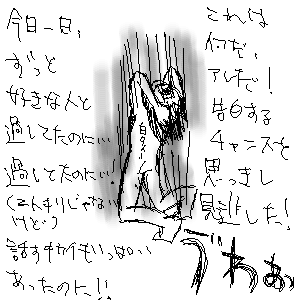 今日一日、
ずっと
好きな人と
過してたのに…
過してたのに…!
(2人きりじゃない
けど)
話すチカイもいっぱい
あったのに!!
これは
何だ、
アレだ!
告白する
チャンスを
思っきし
見逃した!
うわぁぁ